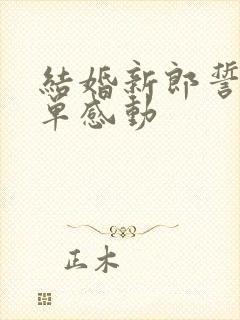 結婚新郎誓
單感動
正木